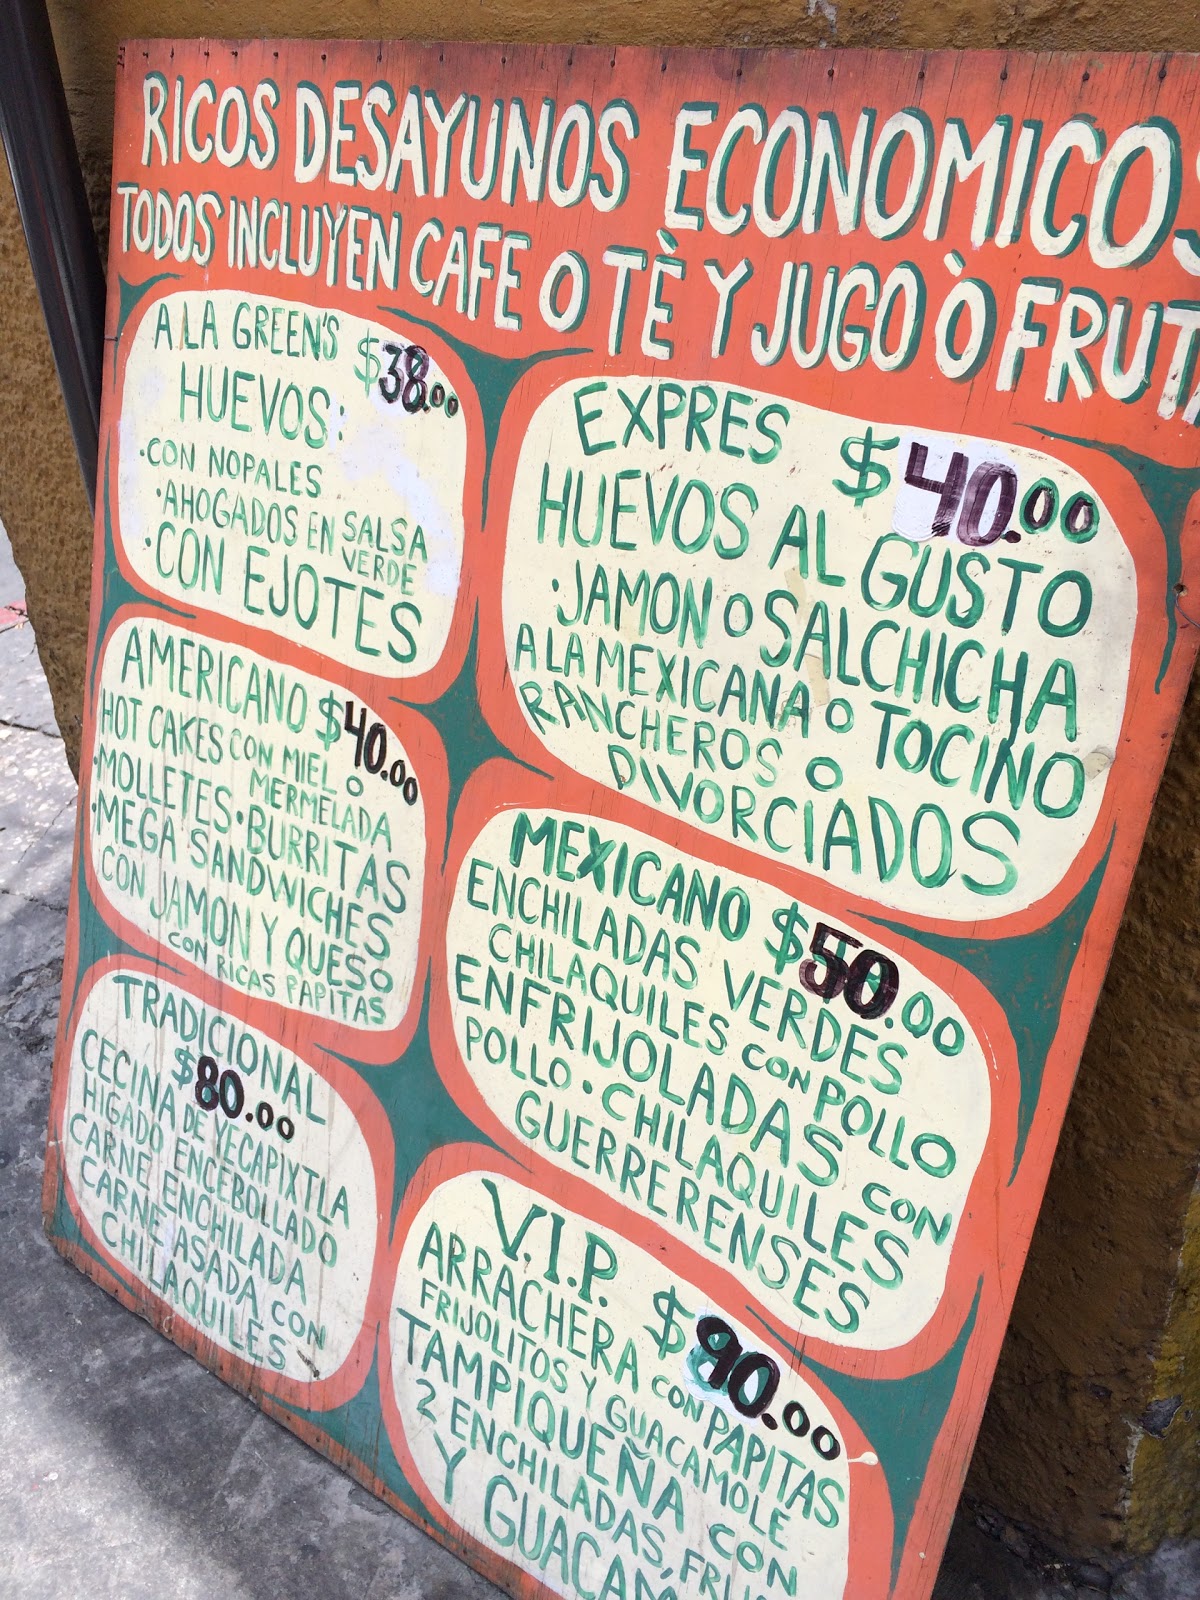 RICOS DESAYUNOS ECONOMICOS
TODOS INCLUYEN CAFE O TÈ Y JUGO Ò FRUTA
A LA GREEN'S $38.00
HUEVOS:
·CON NOPALES
·AHOGADOS EN SALSA VERDE
·CON EJOTES
EXPRES $40.00
HUEVOS AL GUSTO
·JAMON O SALCHICHA
A LA MEXICANA O TOCINO
RANCHEROS O
DIVORCIADOS
AMERICANO $40.00
HOT CAKES CON MIEL O
MERMELADA
·MOLLETES·BURRITAS
·MEGA SANDWICHES
CON JAMON Y QUESO
CON RICAS PAPITAS
MEXICANO $50.00
ENCHILADAS VERDES
CHILAQUILES CON POLLO
ENFRIJOLADAS CON
POLLO·CHILAQUILES
GUERRERENSES
TRADICIONAL
$80.00
CECINA DE YECAPIXTLA
HIGADO ENCEBOLLADO
CARNE ENCHILADA
CARNE ASADA CON
CHILAQUILES
V.I.P. $90.00
ARRACHERA CON PAPITAS
FRIJOLITOS Y GUACAMOLE
TAMPIQUEÑA CON
2 ENCHILADAS,
Y